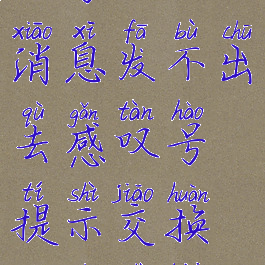 xiāo xī fā bù chū
消息发不出
qù gǎn tàn hào
去感叹号
tí shì jiāo huàn
提示交换